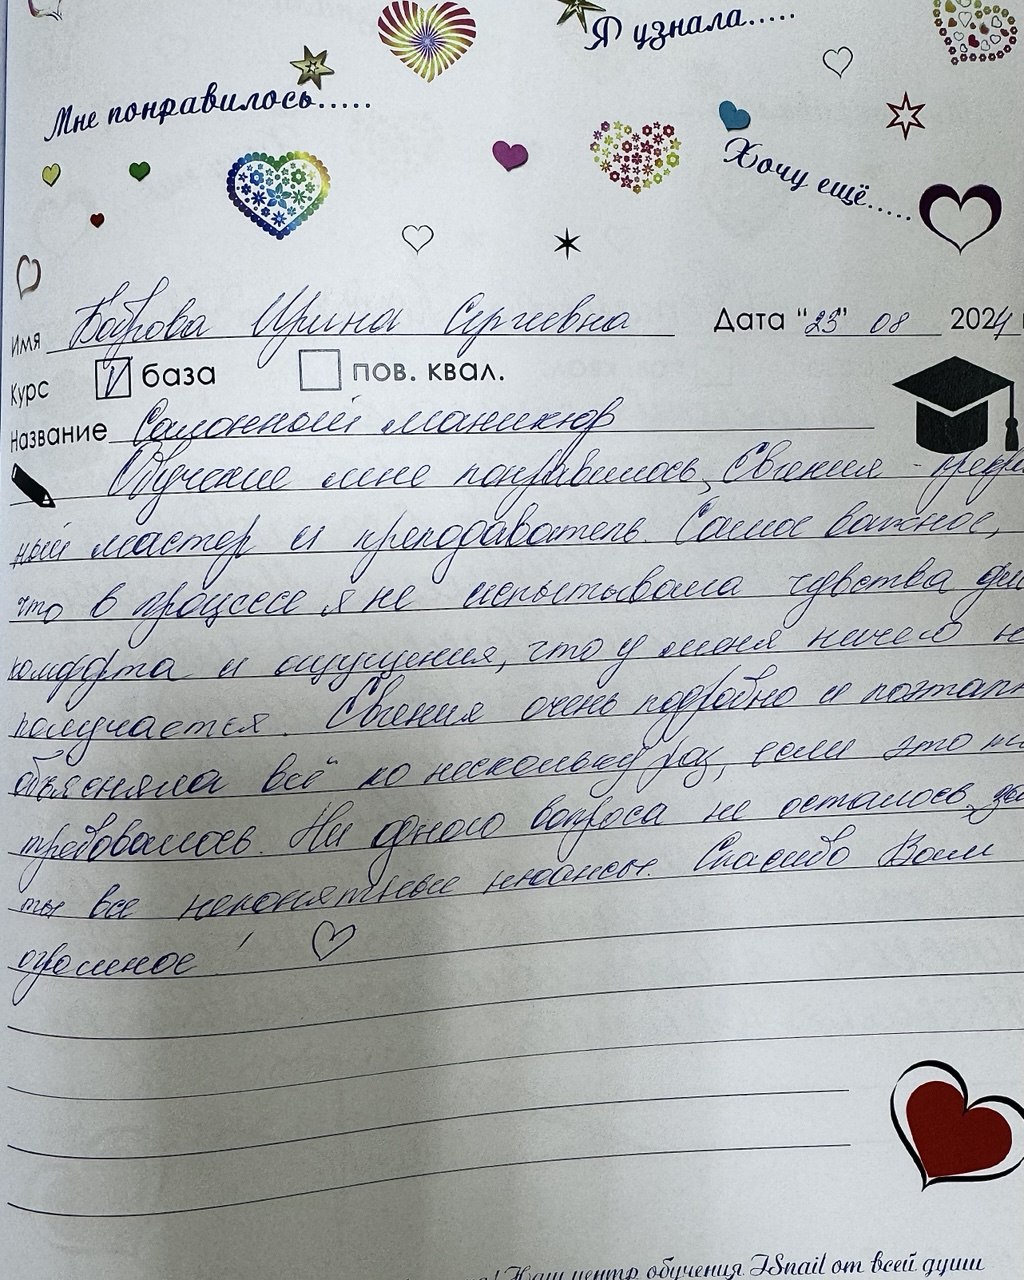 Я узнала.....
Мне понравилось.....
Хочу ещё.....
Имя Боброва Ирина Сергеевна Дата "23" 08 2024
Курс V база пов. квал.
Название Салонный маникюр
Обучение мне понравилось, Евгения -
ный мастер и преподаватель. Самое важное,
что в процессе я не испытывала чувства дис
комфорта и ощущения, что у меня ничего н
получается. Евгения очень подробно и поэтапн
объясняла всё по нескольку раз, если это
требовалось. Ни одного вопроса не осталось,
ты все непонятные нюансы. Спасибо Вам
огромное!
Наш центр обучения ISnail от всей души